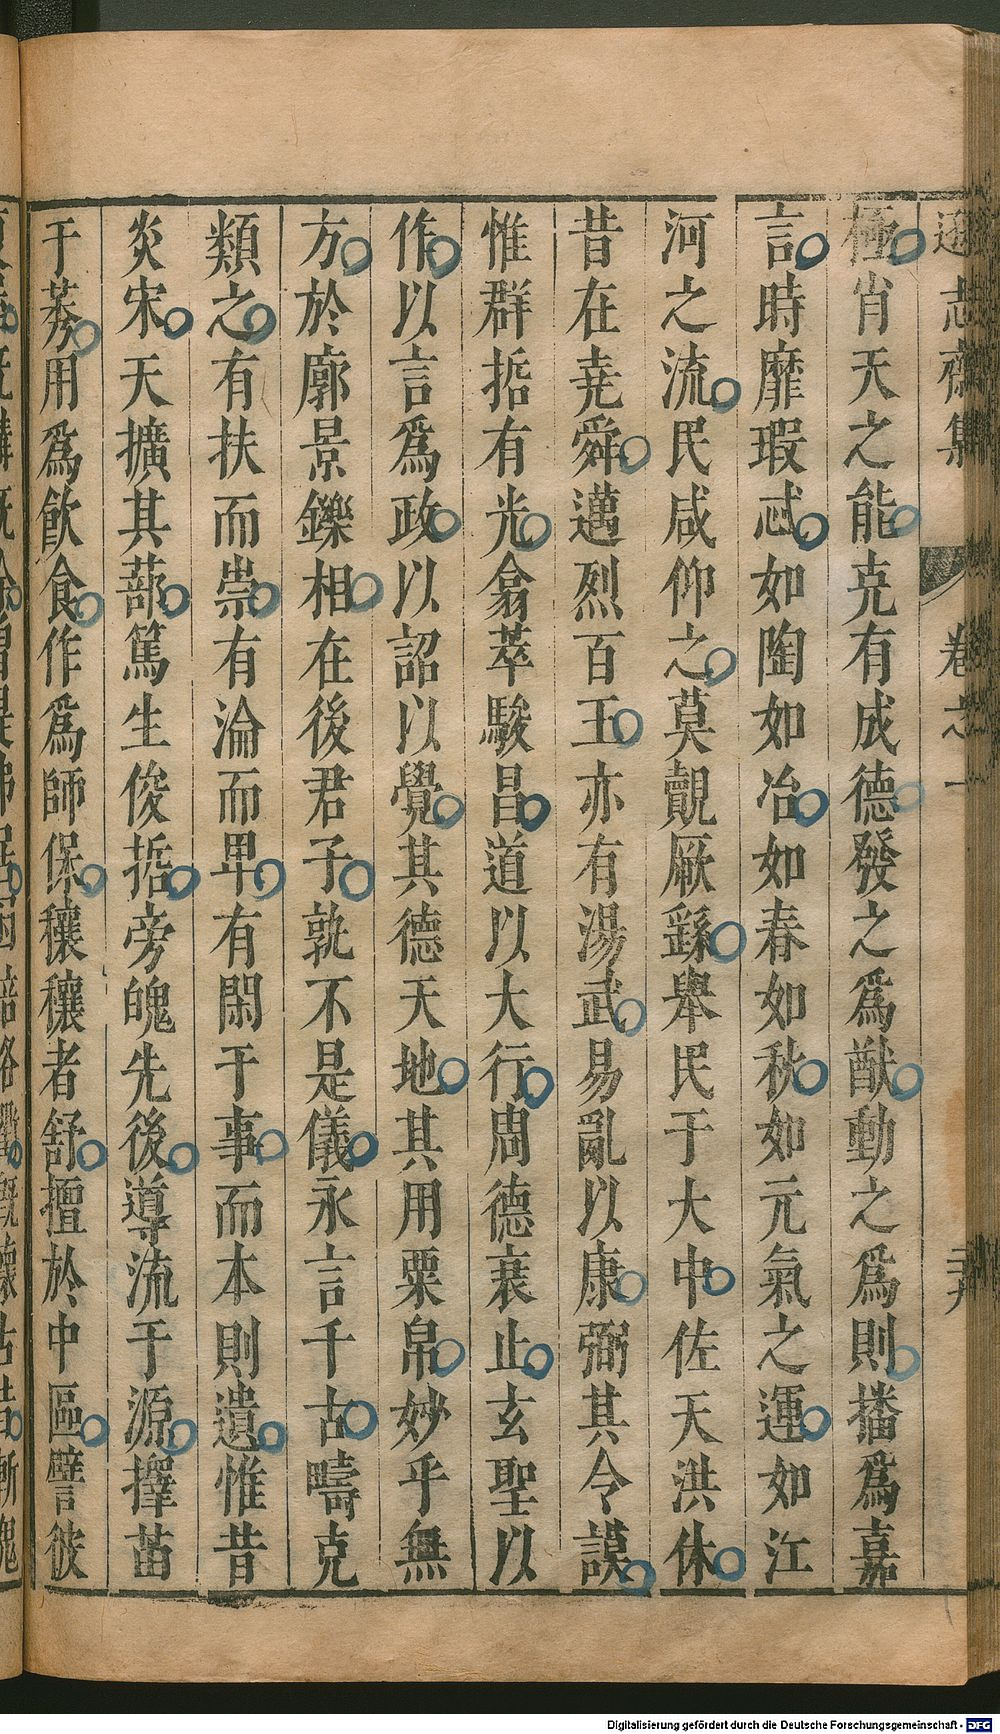 遜志齋集 卷之一
極肖天之能克有成德發之爲猷動之爲則播爲嘉
言時靡瑕忒如陶如冶如春如秋如元氣之運如江
河之流民咸仰之莫覿厥繇舉民于大中佐天洪休
昔在堯舜邁烈百王亦有湯武易亂以康弼其令謨
惟群哲有光翕萃駿昌道以大行周德衰止玄聖以
作以言爲政以詔以覺其德天地其用粟帛妙乎無
方於廓景鑠相在後君子孰不是儀永言千古疇克
類之有扶而崇有淪而卑有閑于事而本則遺惟昔
炎宋天擴其蔀篤生俊哲旁魄先後導流于源擇苗
于莠用爲飲食作爲師保穰穰者舒擅於中區譬彼
Digitalisierung gefördert durch die Deutsche Forschungsgemeinschaft - DFG